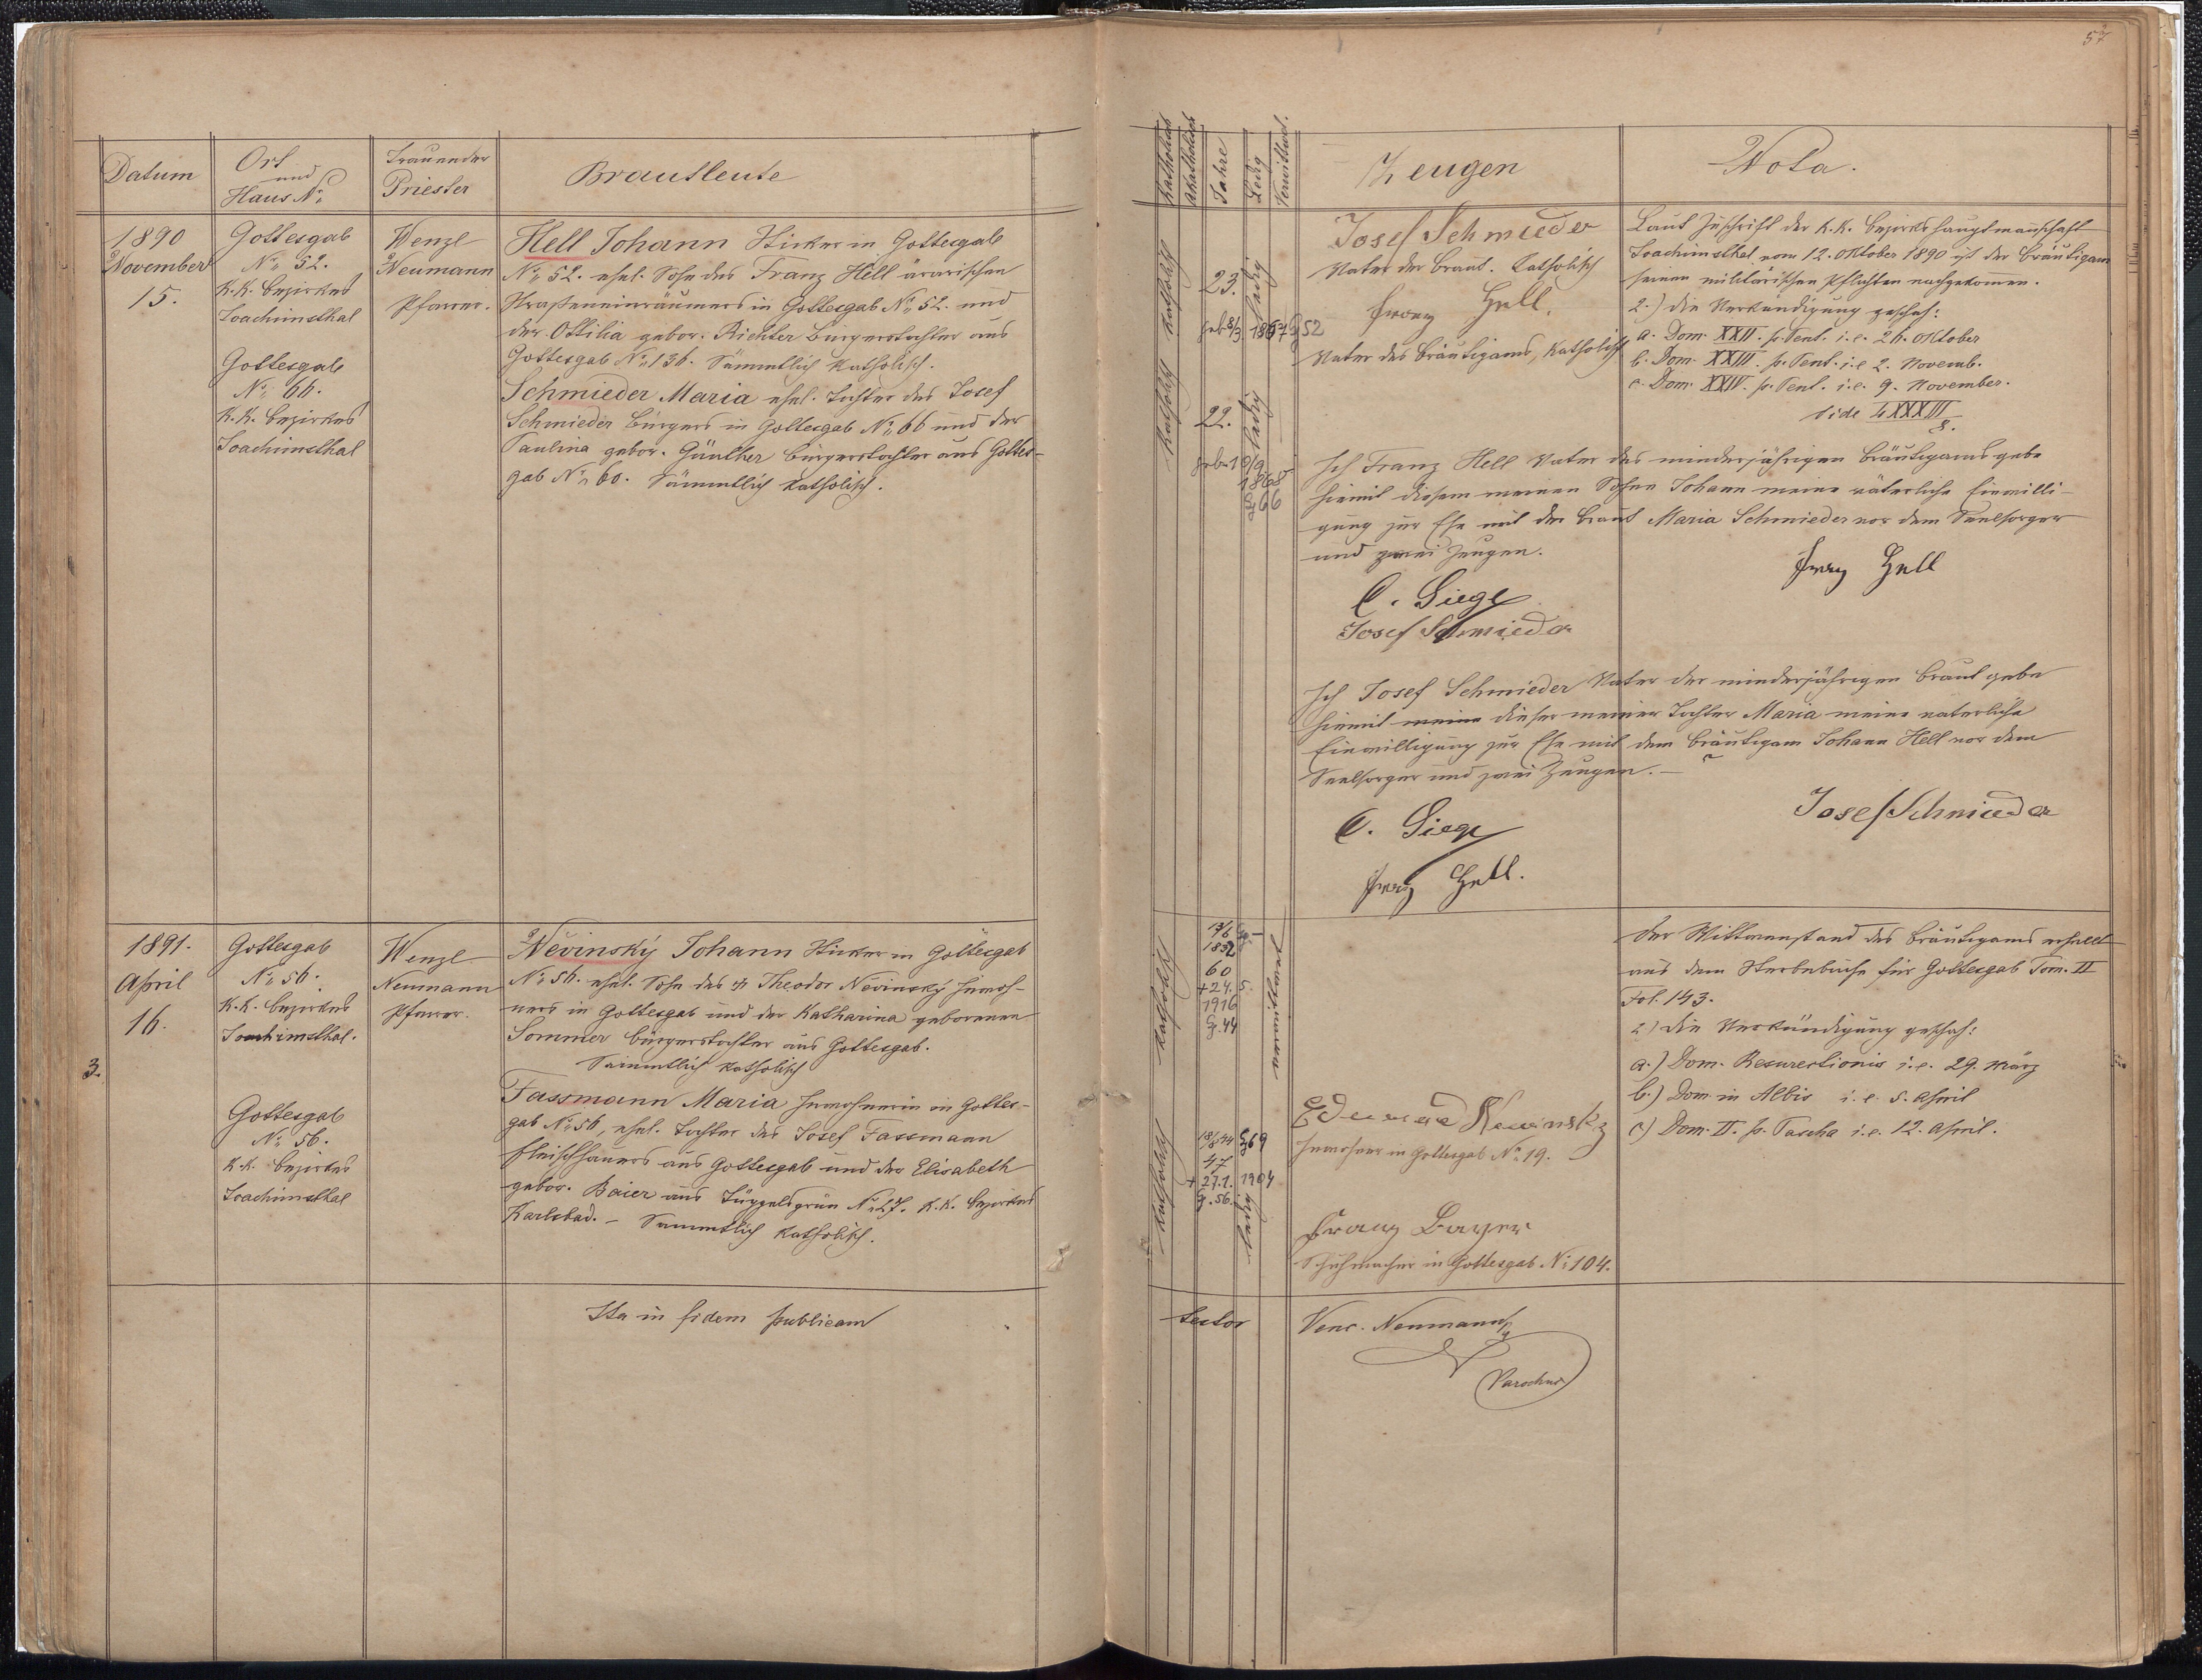 57
Datum
Ort
und
Haus No
Trauender
Priester
Brautleute
1890
November
15.
Gottesgab
No 52.
k.k. Bezirkes
Joachimsthal
Gottesgab
No 66.
k.k. Bezirkes
Joachimsthal
Wenzl
Neumann
Pfarrer.
Hell Johann Sticker in Gottesgab
No 52. ehel. Sohn des Franz Hell ärarischen
Straßeneinräumers in Gottesgab No 52. und
der Ottilia gebor. Richter Bürgerstochter aus
Gottesgab No 136. Sämmtlich katholisch.
Schmieder Maria ehel. Tochter des Josef
Schmieder Bürgers in Gottesgab No 66 und der
Paulina gebor. Günther Bürgerstochter aus Gottes-
gab No 60. Sämmtlich katholisch.
1891.
April
16.
3.
Gottesgab
No 56.
k.k. Bezirkes
Joachimsthal.
Gottesgab
No 56.
k.k. Bezirkes
Joachimsthal
Wenzl
Neumann
Pfarrer.
Něvinský Johann Sticker in Gottesgab
No 56. ehel. Sohn des Theodor Něvinský Inwoh-
ners in Gottesgab und der Katharina geborenen
Sommer Bürgerstochter aus Gottesgab.
Sämmtlich katholisch
Fassmann Maria Inwohnerin in Gottes-
gab No 56, ehel. Tochter des Josef Fassmann
Fleischhauers aus Gottesgab und der Elisabeth
gebor. Baier aus Tüppelsgrün No 27. k.k. Bezirkes
Karlsbad. - Sämmtlich katholisch.
Ita in fidem publicam
Katholisch
Akatholisch
Jahre
Ledig
Verwittwet.
Zeugen
Nota.
katholisch
23.
ledig
geb. 8/3 1867 G 52
katholisch
22.
ledig
geb. 10/9
1868
G 66
Josef Schmieder
Vater der Braut. Katholisch
Franz Hell.
Vater des Bräutigams, katholisch
Laut Zuschrift der k.k. Bezirkshauptmannschaft
Joachimsthal vom 12. Oktober 1890 ist der Bräutigam
seinen militärischen Pflichten nachgekommen.
2.) Die Verkündigung geschah:
a. Dom. XXII. p. Pent. i.e. 26. Oktober
b. Dom. XXIII. p. Pent. i.e 2. Novemb.
c. Dom. XXIV. p. Pent. i.e. 9. November.
Vide
Ich Franz Hell Vater des minderjährigen Bräutigams gebe
hiemit diesem meinen Sohne Johann meine väterliche Einwilli-
gung zur Ehe mit der Braut Maria Schmieder vor dem Seelsorger
und zwei Zeugen.
Franz Hell
C. Siegl
Josef Schmieder
Ich Josef Schmieder Vater der minderjährigen Braut gebe
hiemit meine dieser meiner Tochter Maria meine vaterliche
Einwilligung zur Ehe mit dem Bräutigam Johann Hell vor dem
Seelsorger und zwei Zeugen. -
Josef Schmieder
C. Siegl
Franz Hell.
katholisch
1832
60
+ 24. 5.
1916
G. 44
katholisch
18/8 44 G 69
47
+ 27.1. 1904
G. 56.
ledig
Eduard Newinsky
Inwohner in Gottesgab No 19.
Franz Bayer
Schuhmacher in Gottesgab No 104.
Der Wittwenstand des Bräutigams erhellt
aus dem Sterbebuche für Gottesgab Tom. II
Fol. 143.
2) Die Verkündigung geschah:
a.) Dom. Resurectionis i.e. 29. März
b.) Dom in Albis i.e. 5. April
c) Dom. II. p. Pascha i.e. 12. April.
testor
Venc. Neumann
Parochus